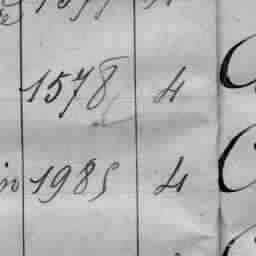 1578 4
in 1985 4